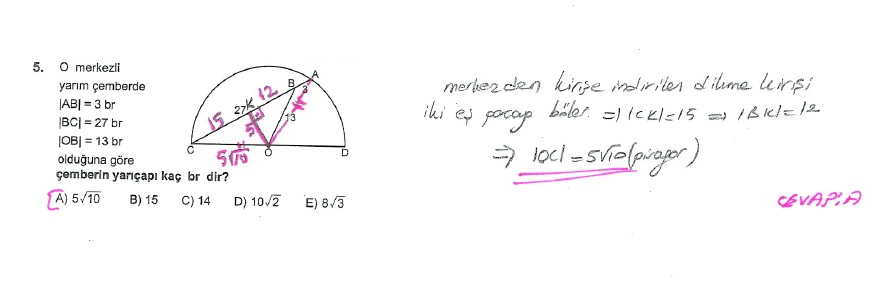 5. O merkezli
yarım çemberde
|AB| = 3 br
|BC| = 27 br
|OB| = 13 br
olduğuna göre
çemberin yarıçapı kaç br dir?
A) 5√10 B) 15 C) 14 D) 10√2 E) 8√3
A
B
3
12
27
K
15
13
5
C
5√10
O
D
merkezden kirişe indirilen dikme kirişi
iki eş parçaya böler. ⇒ |CK|=15 ⇒ |BK|=12
⇒ |OC| = 5√10 (pisagor)
CEVAP: A